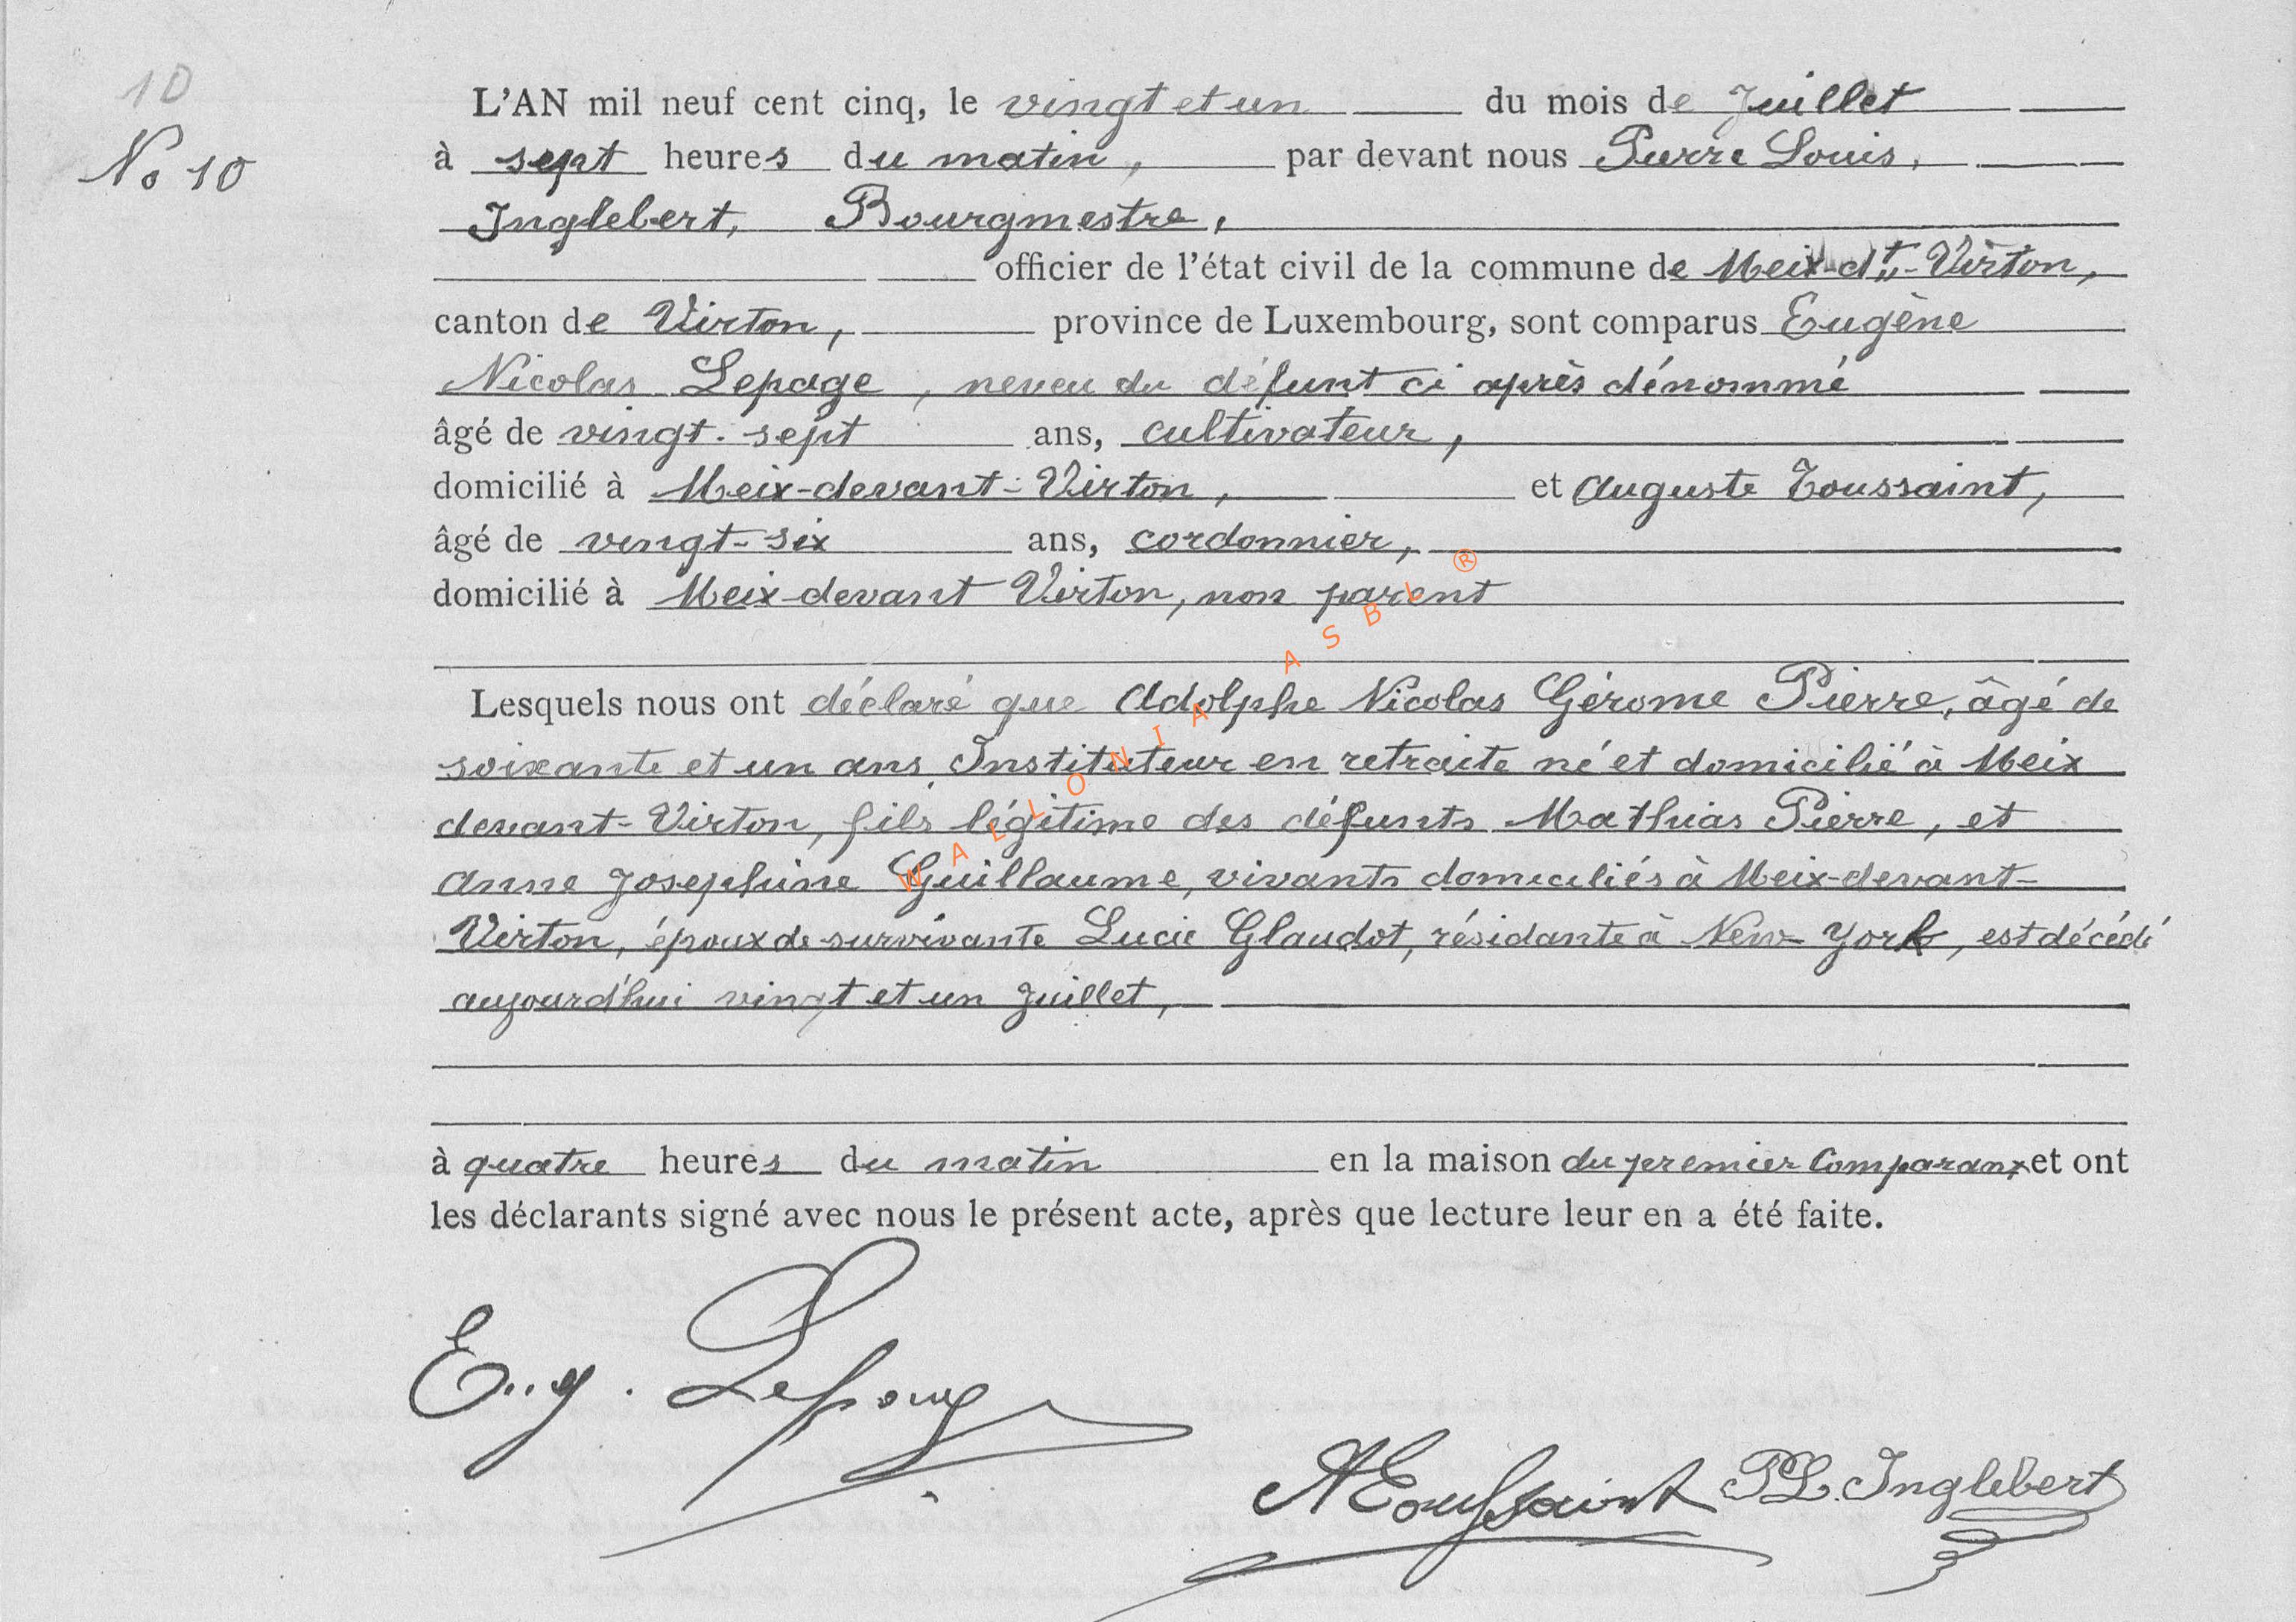 10
No 10
L'AN mil neuf cent cinq, le vingt et un du mois de Juillet
à sept heures du matin, par devant nous Pierre Louis,
Inglebert, Bourgmestre,
officier de l'état civil de la commune de Meix-dt-Virton,
canton de Virton, province de Luxembourg, sont comparus Eugène
Nicolas Lepage, neveu du défunt ci après dénommé
âgé de vingt-sept ans, cultivateur,
domicilié à Meix-devant-Virton, et Auguste Toussaint,
âgé de vingt-six ans, cordonnier,
domicilié à Meix-devant Virton, non parent
Lesquels nous ont déclaré que Adolphe Nicolas Gérome Pierre, âgé de
soixante et un ans, Instituteur en retraite né et domicilié à Meix
devant-Virton, fils légitime des défunts Mathias Pierre, et
Anne Josephine Guillaume, vivants domiciliés à Meix-devant-
Virton, époux de survivante Lucie Glaudot, résidante à New York, est décédé
aujourd'hui vingt et un Juillet,
à quatre heures du matin en la maison du premier Comparant et ont
les déclarants signé avec nous le présent acte, après que lecture leur en a été faite.
Eug. Lepage
A Toussaint PL. Inglebert
WALLONIA ASBL ®